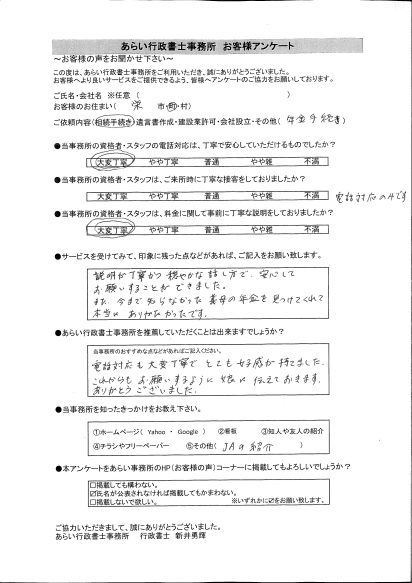 あらい行政書士事務所 お客様アンケート
～お客様の声をお聞かせ下さい～
この度は、あらい行政書士事務所をご利用いただき、誠にありがとうございました。
お客様へより良いサービスをご提供できるよう、皆様へアンケートのご協力をお願いしております。
ご氏名・会社名 ※任意 ( )
お客様のお住まい( 栄 市・町・村)
ご依頼内容(相続手続き)遺言書作成・建設業許可・会社設立・その他( 年金手続き )
●当事務所の資格者・スタッフの電話対応は、丁寧で安心していただけるものでしたか?
大変丁寧 やや丁寧 普通 やや雑 不満
●当事務所の資格者・スタッフは、ご来所時に丁寧な接客をしておりましたか?
大変丁寧 やや丁寧 普通 やや雑 不満 電話対応のみです
●当事務所の資格者・スタッフは、料金に関して事前に丁寧な説明をしておりましたか?
大変丁寧 やや丁寧 普通 やや雑 不満
●サービスを受けてみて、印象に残った点などがあれば、ご記入をお願い致します。
説明が丁寧かつ穏やかな話し方で、安心して
お願いすることができました。
また、今まで知らなかった義母の年金を見つけてくれて
本当にありがたかったです。
●あらい行政書士事務所を推薦していただくことは出来ますでしょうか?
当事務所のおすすめな点などがあればご記入ください。
電話対応も大変丁寧でとても好感が持てました。
これからもお願いするように娘に伝えておきます。
ありがとうございました。
●当事務所を知ったきっかけをお教え下さい。
①ホームページ( Yahoo ・ Google ) ②看板 ③知人や友人の紹介
④チラシやフリーペーパー ⑤その他( JAの紹介 )
●本アンケートをあらい事務所のHP(お客様の声)コーナーに掲載してもよろしいでしょうか?
□掲載しても構わない。
☑氏名が公表されなければ掲載してもかまわない。
□掲載しないで欲しい。 ※いずれかに☑をお願い致します。
ご協力いただきまして、誠にありがとうございました。
あらい行政書士事務所 行政書士 新井勇輝